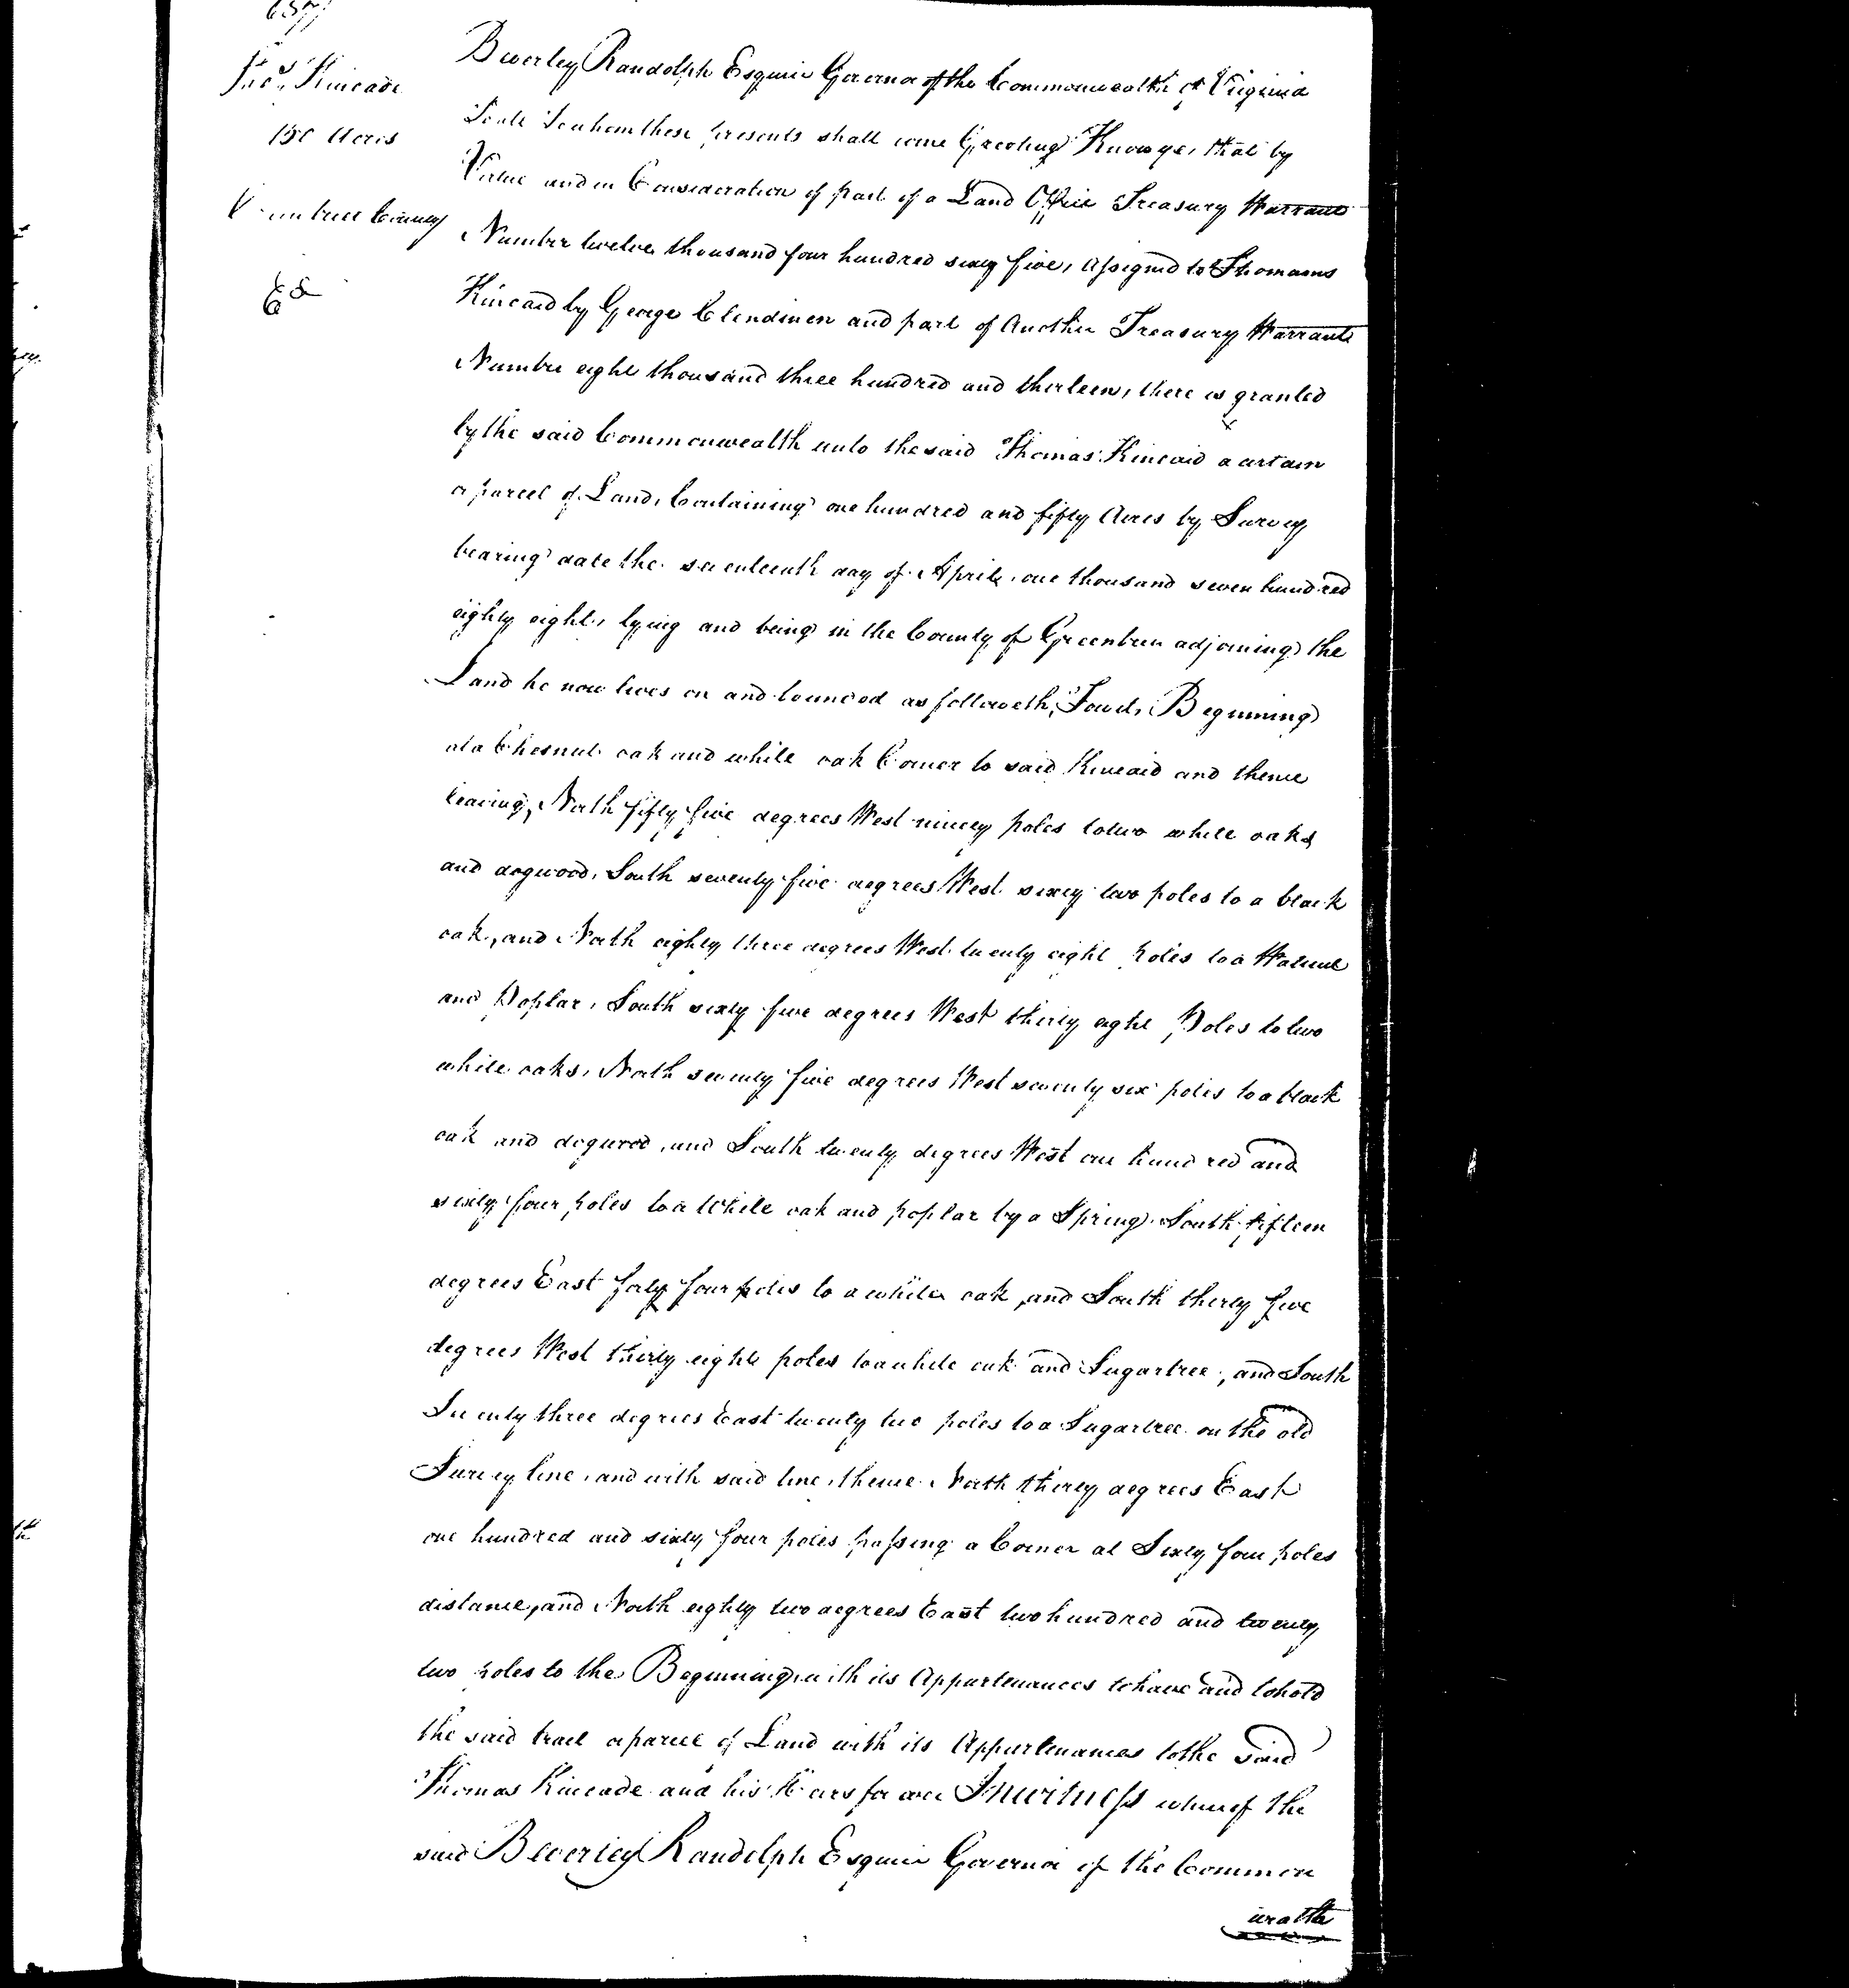 657
Thos. Kincade
150 Acres
Greenbrier County
Exd
Beverley Randolph Esquire Governor of the Commonwealth of Virginia
To all To whom these presents shall come Greeting Know ye, that by
Virtue and in Consideration of part of a Land Office Treasury Warrant
Number twelve thousand four hundred sixty five, assigned to Thomams
Kincaid by George Clendinen and part of Another Treasury Warrant
Number eight thousand three hundred and thirteen, there is granted
by the said Commonwealth unto the said Thomas Kincaid a certain
or parcel of Land, Containing one hundred and fifty Acres by Survey
bearing date the seventeenth day of April, one thousand seven hundred
eighty eight, lying and being in the County of Greenbrier adjoining the
Land he now lives on and bounded as followeth, Towit, Beginning
at a Chesnut oak and white oak Corner to said Kincaid and thence
leaving, North fifty five degrees West ninety poles to two white oaks
and dogwood, South seventy five degrees West sixty two poles to a black
oak, and North eighty three degrees West twenty eight poles to a Walnut
and Poplar, South sixty five degrees West thirty eight Poles to two
white oaks, North seventy five degrees West seventy six poles to a black
oak and dogwood, and South twenty degrees West one hundred and
sixty four poles to a White oak and poplar by a Spring, South fifteen
degrees East forty four poles to a white oak, and South thirty five
degrees West thirty eight poles to a white oak and Sugartree, and South
Twenty three degrees East twenty two poles to a Sugartree on the old
Survey line, and with said line, thence North thirty degrees East
one hundred and sixty four poles passing a Corner at Sixty four poles
distance, and North eighty two degrees East two hundred and twenty
two poles to the Beginning, with its Appurtenances to have and to hold
the said tract or parcel of Land with its Appurtenances to the said
Thomas Kincade and his Heirs forever In witness whereof the
said Beverley Randolph Esquire Governor of the Common
wealth